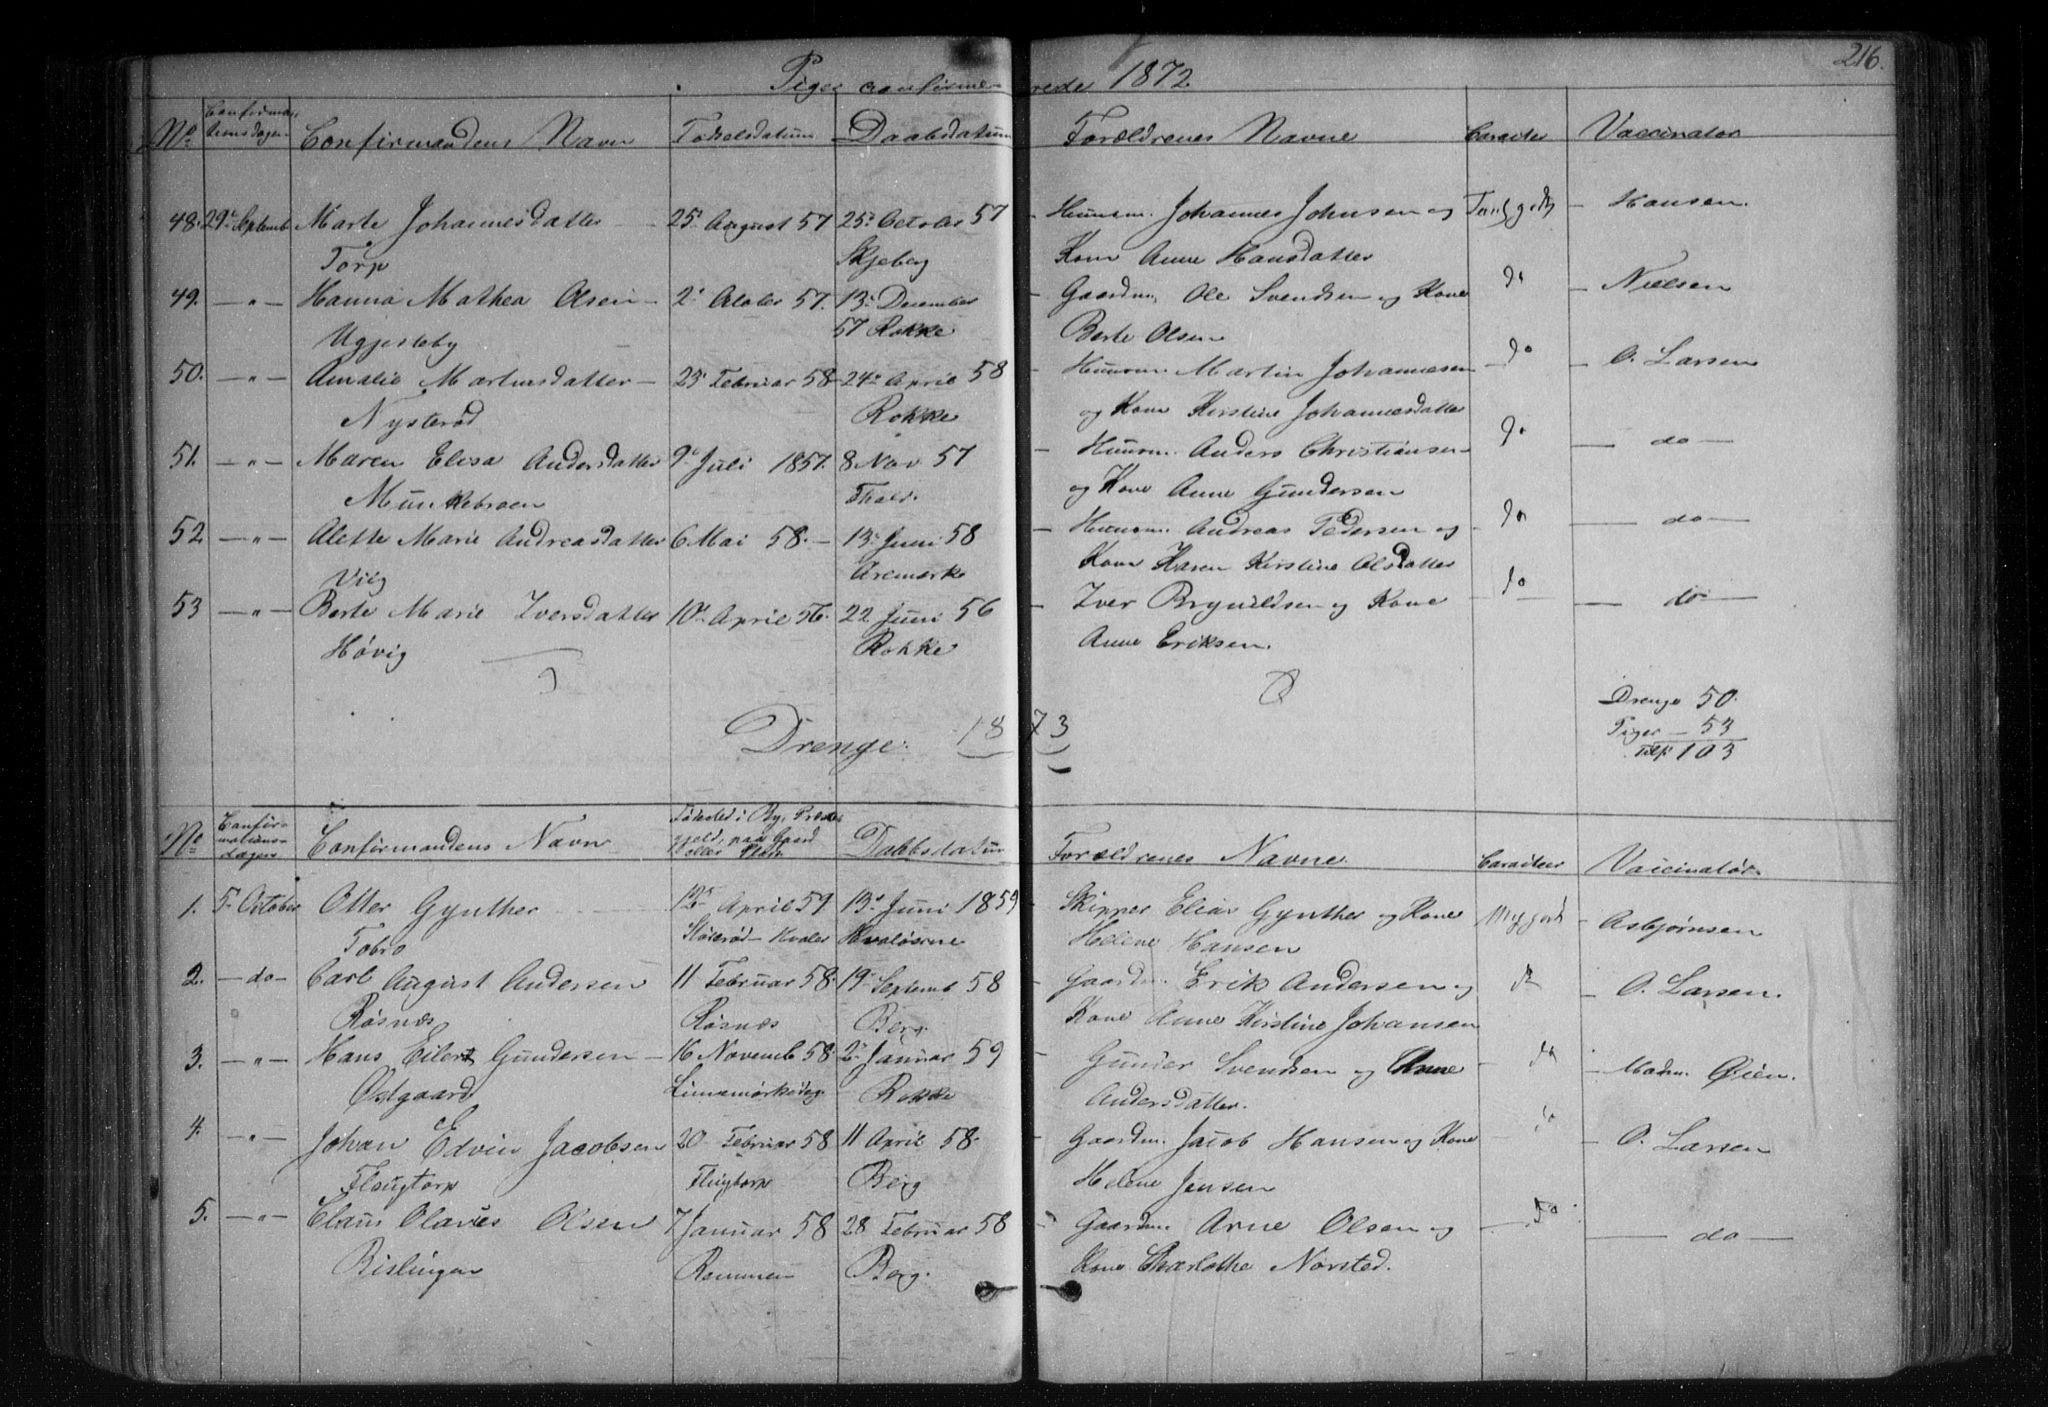 216.
Piger confirmerede 1872
No Confirmationsdagen Confirmandens Navn Fødselsdatum Daabsdatum Forældrenes Navne Caracter Vaccinator
48. 29de Septemb Marte Johannesdatter 25 August 57 25 October 57 Huusm. Johannes Johnsen og Hansen.
Torp Skjeberg Kone Anne Hansdatter
49. — " — Hanna Mathea Olsen — 2 October 57. 13 December Gaardm. Ole Svendsen og Kone do Nielsen
Uggesleby 57 Rokke Berte Olsen
50. — " — Amalie Martinsdatter — 23 Februar 58 — 24de April 58 Huusm. Martin Johannesen do O. Larsen
Nysterød Rokke og Kone Kirstine Johannesdatter
51. — " — Maren Elisa Andersdatter 9de Juli 1857. 8 Nov 57 Huusm. Anders Christiansen do — do —
Munkebroen og Kone Anne Gundersen
52 — " — Alette Marie Andreasdatter 6 Mai 58. — 13 Juni 58 Huusm. Andreas Pedersen og do — do —
Viig Aremarke Kone Karen Kirstine Olsdatter
53 — " — Berte Marie Iversdatter 10 April 56. 22 Juni 56 Iver Brynildsen og Kone do — do —
Høvig Rokke Anne Eriksen.
Drenge 50.
Piger — 53
103
Drenge. 1873
No Confirmationsdagen Confirmandens Navn Fødested i By, Præstegjeld, paa Gaard eller Plads Daabsdatum Forældrenes Navne Caracter Vaccinatør.
1. 5 October Otter Gynther 12 April 59 13 Juni 1859 Skipper Elias Gynther og Kone Asbjørnsen
Tobro Hvaler Hvaløerne Helene Hansen
2. — do — Carl August Andersen 11 Februar 58. 19 Septemb 58 Gaardm. Erik Andersen og do O. Larsen.
Røsnæs Røsnæs Berg Kone Anne Kirstine Johansen
3. — " — Hans Eilert Gundersen — 16 Novemb 58. 2 Januar 59 Gunder Svendsen og Anne do Madm. Øien.
Østgaard Rokke Andersdatter.
4. — " — Johan Edvin Jacobsen 20 Februar 58 11 April 58. Gaardm. Jacob Hansen og Kone O. Larsen
Flougtorp Berg Helene Jensen
5. — " — Claus Olavus Olsen 7 Januar 58 28 Februar 58 Gaardm. Arne Olsen og do — do —
Bislingen Remmen Berg. Kone Charlothe Norsted.